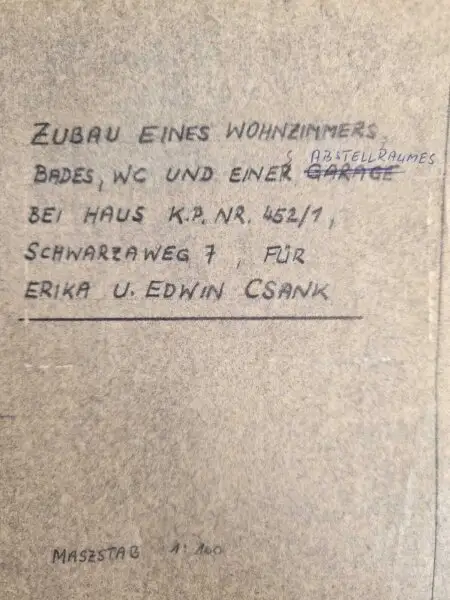 ZUBAU EINES WOHNZIMMERS,
ABSTELLRAUMES
BADES, WC UND EINES GARAGE
BEI HAUS K.P. NR. 452/1,
SCHWARZAWEG 7, FÜR
ERIKA U. EDWIN CSANK
MASZSTAB 1:100